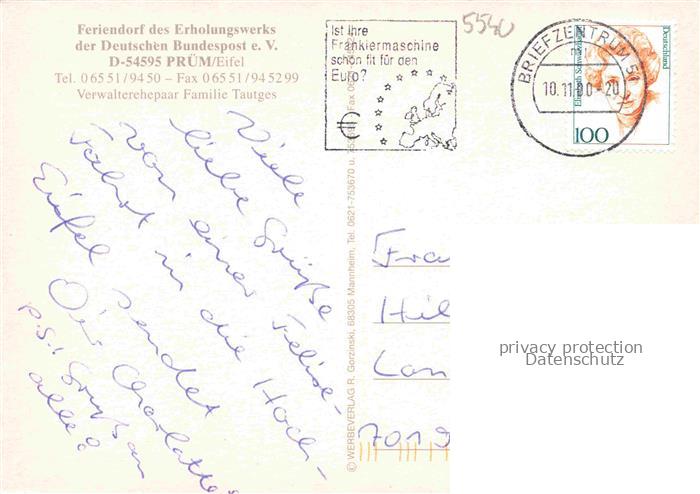 Feriendorf des Erholungswerks
der Deutschen Bundespost e. V.
D-54595 PRÜM/Eifel
Tel. 0 65 51/94 50 – Fax 0 65 51/94 52 99
Verwalterehepaar Familie Tautges
Ist Ihre
Frankiermaschine
schon fit für den
Euro?
5540
BRIEFZENTRUM
10.11.00-20
Deutschland
100
Viele
liebe Grüße
von einer
Fahrt in die Hoch-
Eifel sendet
Dir Charlotte
P.S! Gruß an
alle!
© WERBEVERLAG R. Gorzinski, 68305 Mannheim, Tel. 0621-753670
Fra
Hil
Lan
7019
privacy protection
Datenschutz